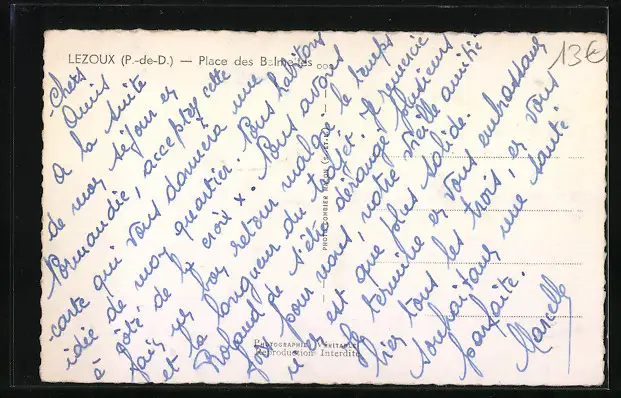 LEZOUX (P.-de-D.) — Place des Balmettes
13€
Chers
Amis
A la suite
de mon séjour en
Normandie, acceptez cette
carte qui vous donnera une
idée de mon quartier. Nous habitons
à côté de la croix x. Nous avons
fait un bon retour malgré le temps
et la longueur du trajet. Je remercie
Roland de s'être dérangé plusieurs
fois pour nous, notre vieille amitié
n'en est que plus solide.
Je termine en vous embrassant
bien tous les trois, en vous
souhaitant une santé
parfaite.
Marcelle
PHOTO COMBIER MACON (S.-ET-L.)
PHOTOGRAPHIE VÉRITABLE
Reproduction Interdite